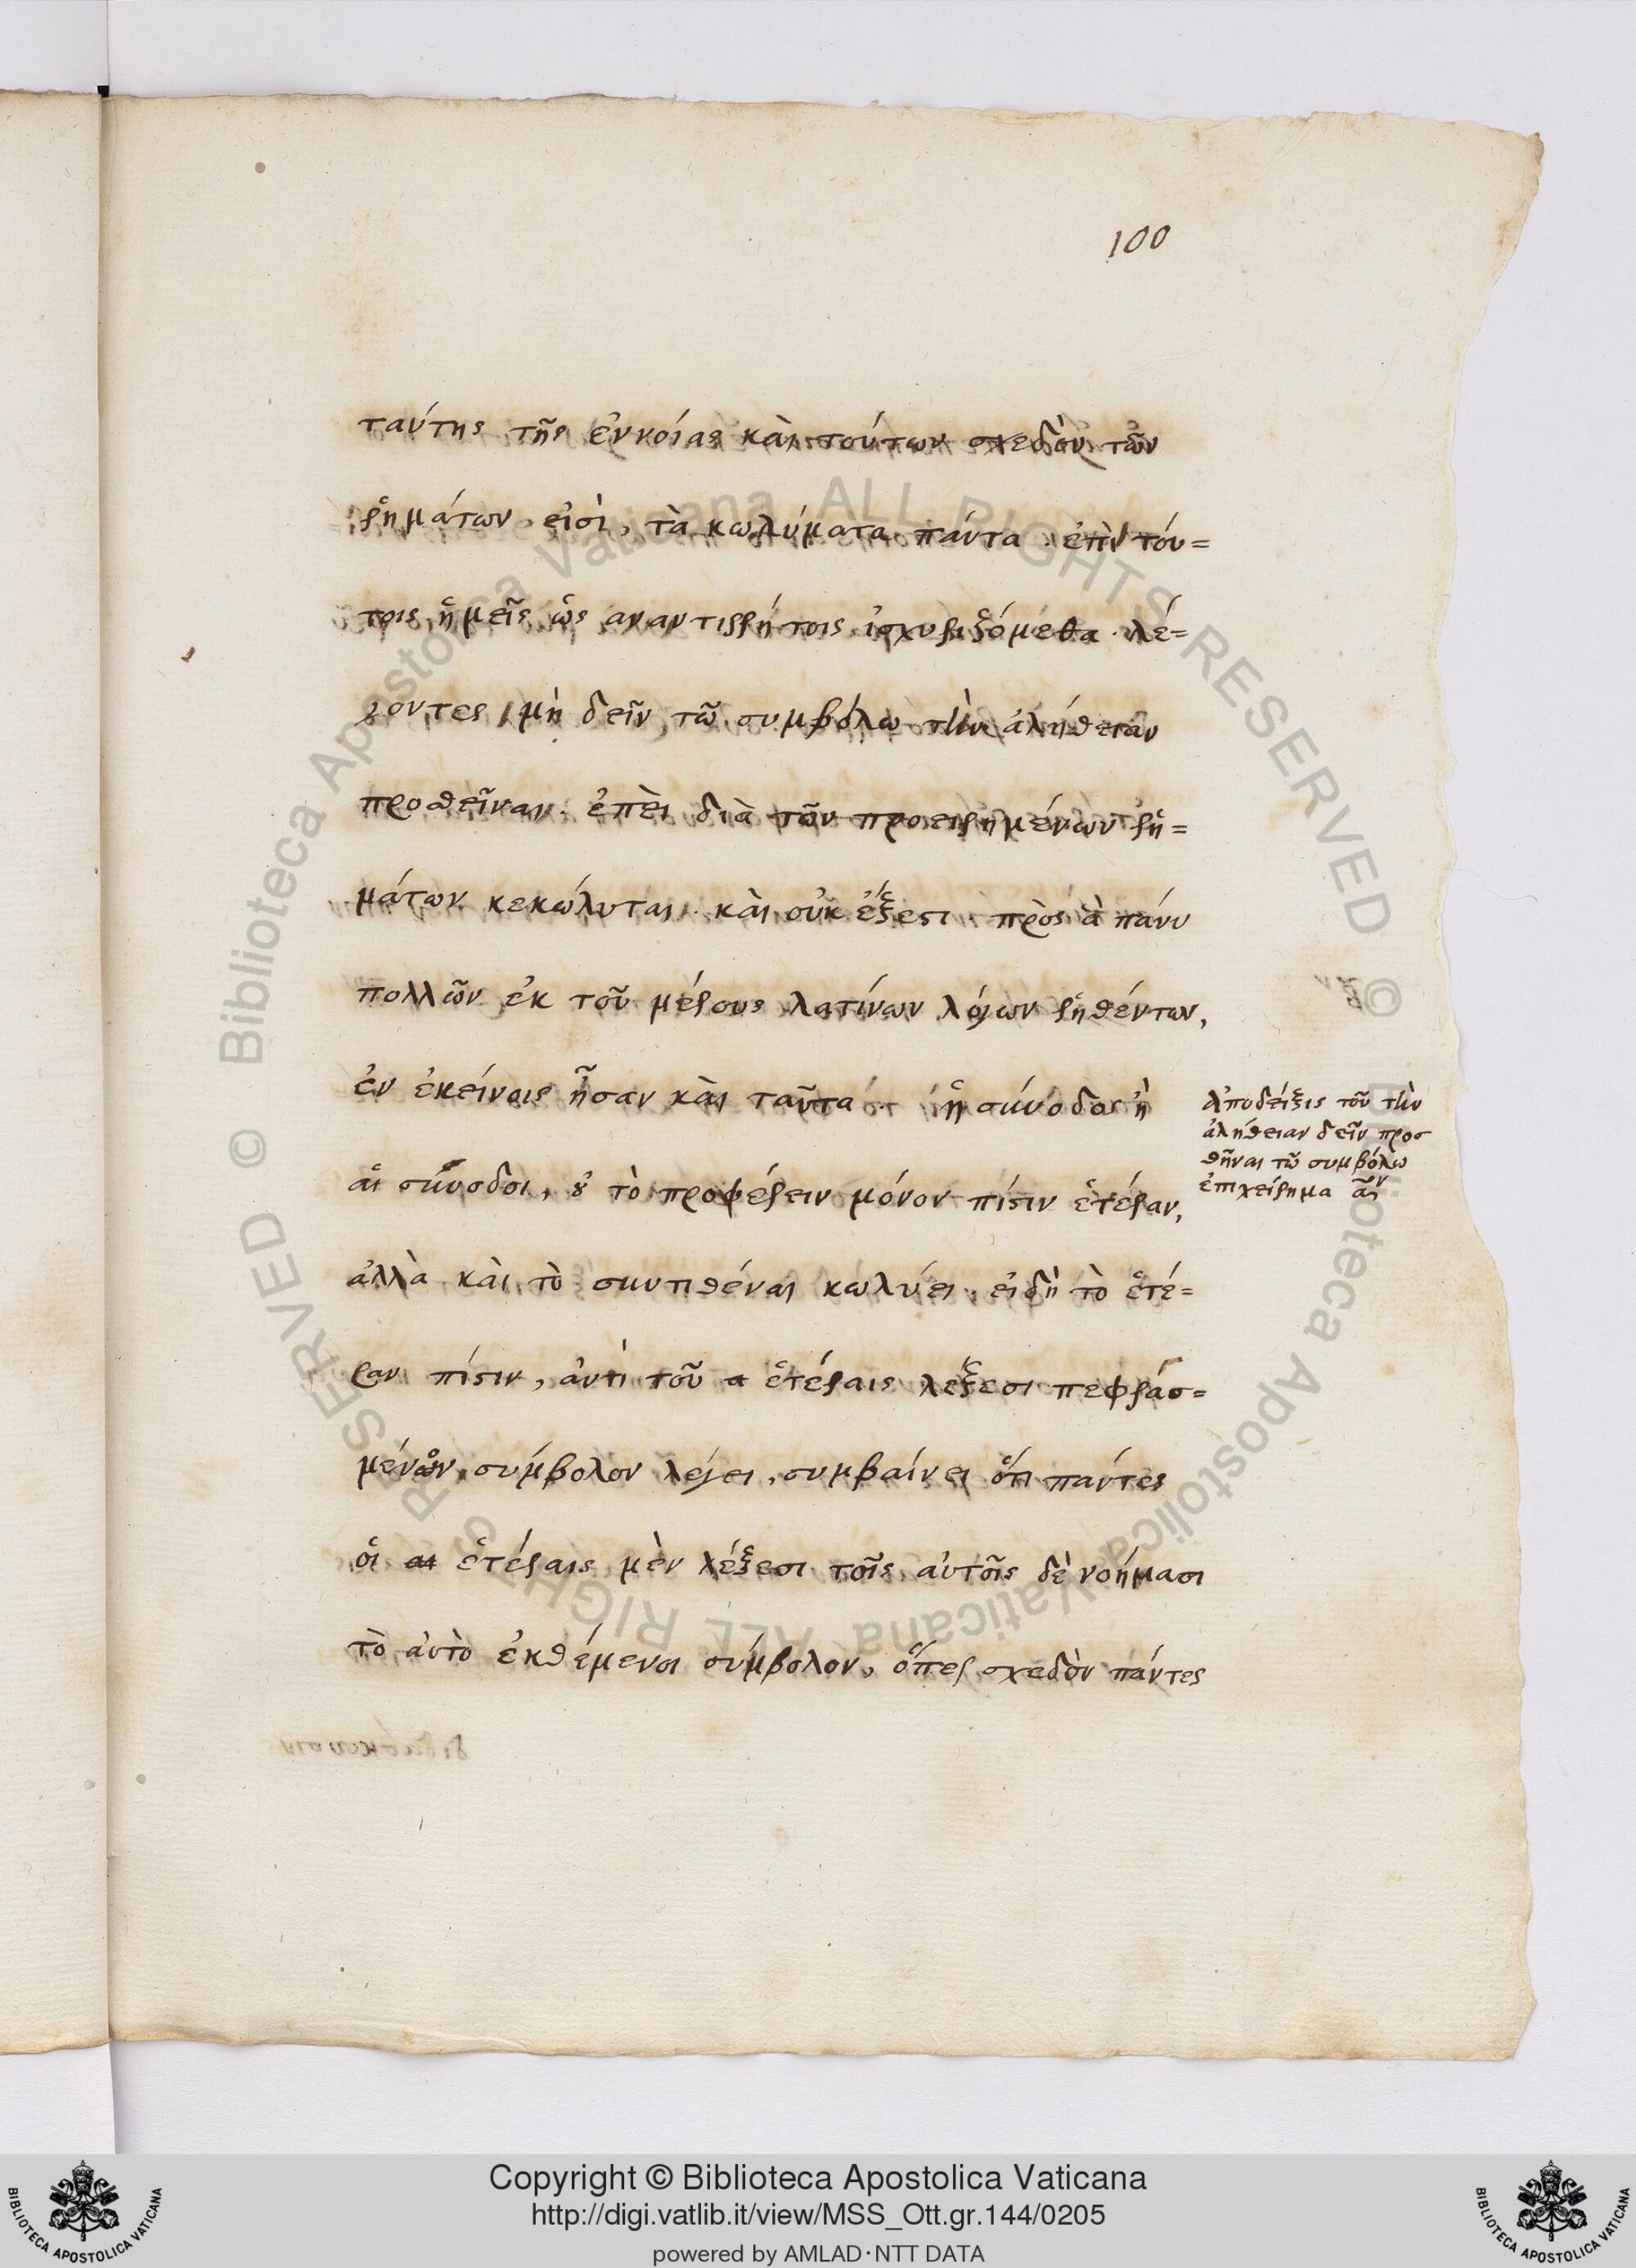 100
ταύτης τῆς ἐννοίας κὰι τούτων σχεδὸν τῶν
ῥημάτων εἰσὶ, τὰ κωλύματα πάντα. ἐπὶ τού=
τοις ἡμεῖς ὡς αναντιρρήτοις ἰσχυριξόμεθα. λέ=
γοντες, μὴ δεῖν τῶ συμβόλω τὴν ἀλήθειαν
προσθεῖναι. ἐπὲι διὰ τῶν προειρημένων ῥη=
μάτων κεκώλυται. κὰι οὐκ ἔξεστι. πρὸς ἃ πάνυ
πολλῶν ἐκ τοῦ μέρους λατίνων λόγων ῥηθέντων,
ἐν ἐκείνοις ἦσαν κὰι ταῦτα. ἡ σύνοδος ἢ
αἱ σύνοδοι, ȣ τὸ προφέρειν μόνον πίστιν ἑτέραν,
ἀλλὰ κὰι τὸ συντιθέναι κωλύει. εἰ δὴ τὸ ἑτέ=
ραν πίστιν, ἀντὶ τοῦ ἑτέραις λέξεσι πεφράσ=
μένον, σύμβολον λέγει, συμβαίνει ὅτι παντες
οἱ ἑτέραις μὲν λέξεσι τοῖς αὐτοῖς δὲ νοήμασι
τὸ αὐτὸ ἐκθέμενοι σύμβολον, ὅπερ σχεδὸν πάντες
Ἀποδείξις τοῦ τὴν
ἀλήθειαν δεῖν προσ
θῆναι τῶ συμβόλω
ἐπιχείρημα
Copyright © Biblioteca Apostolica Vaticana
http://digi.vatlib.it/view/MSS_Ott.gr.144/0205
powered by AMLAD·NTT DATA
BIBLIOTECA APOSTOLICA VATICANA
BIBLIOTECA APOSTOLICA VATICANA